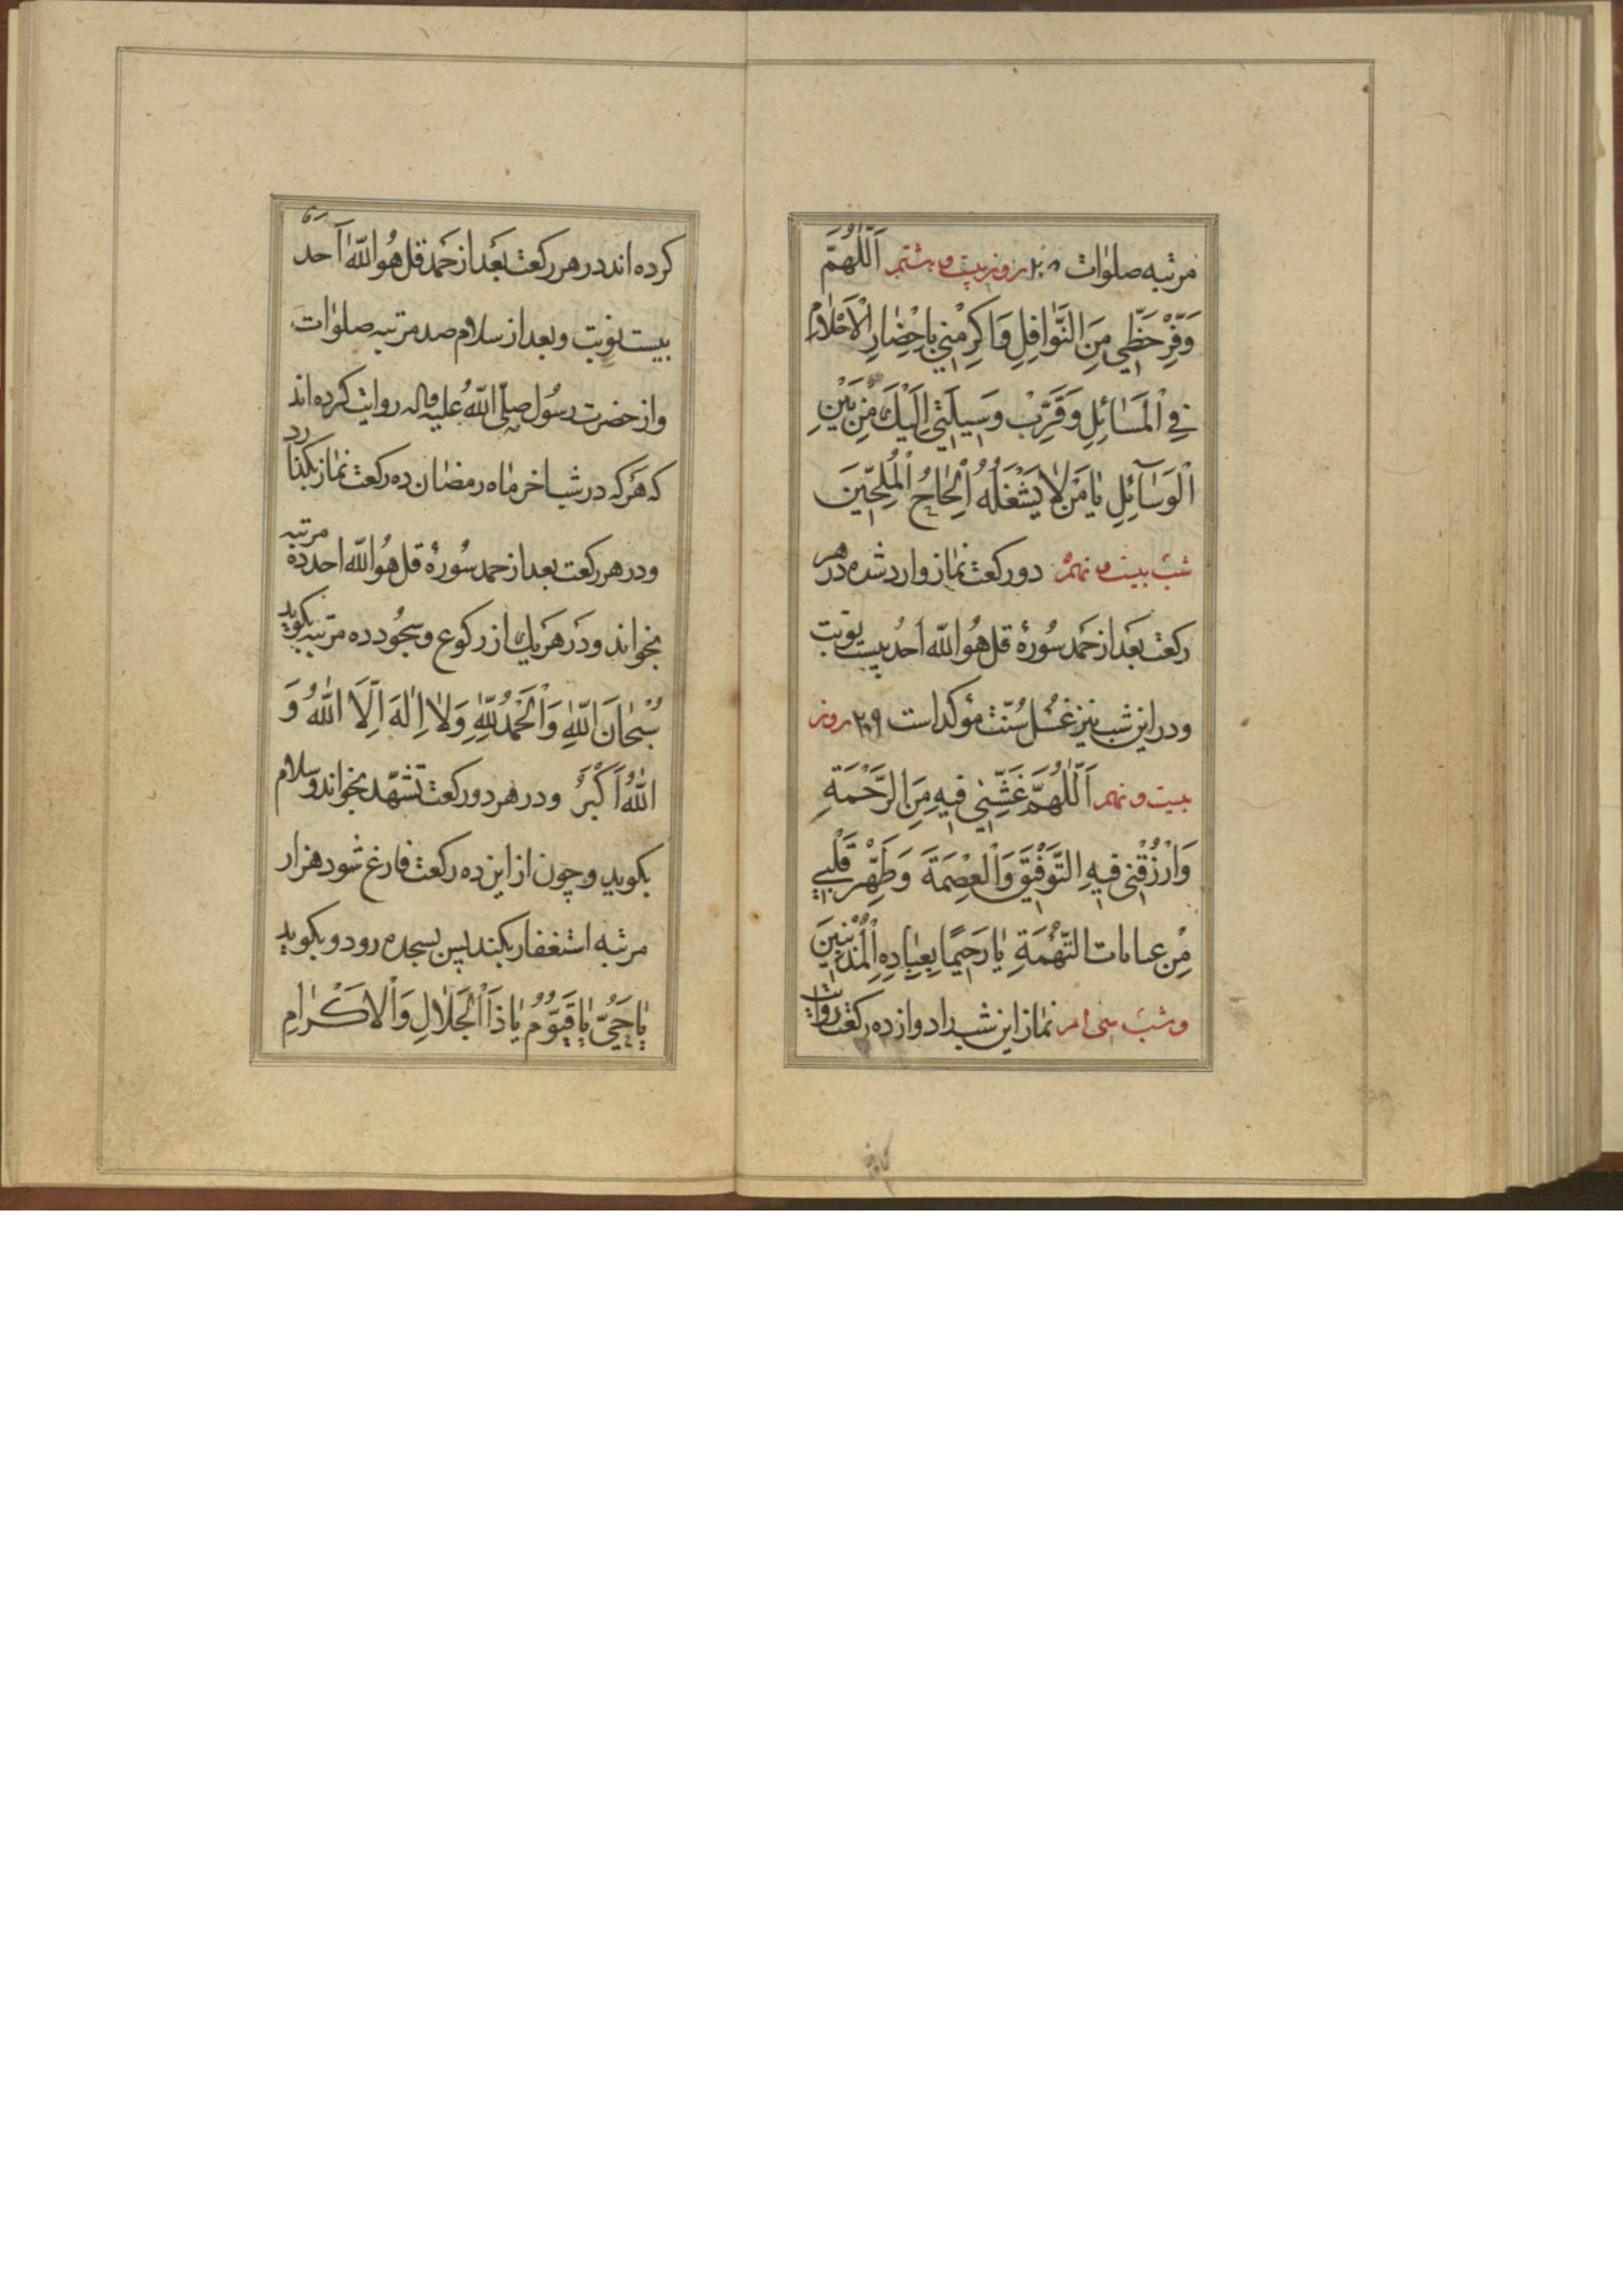 مرتبه صلوات ۲۸ روز بیست و هشتم اَللّٰهُمَّ
وَفِّرْ حَظّي مِنَ النَّوٰافِلِ وَاَكْرِمْني بِاِحْضٰارِ الْاَحْلٰامِ
فِي الْمَسٰائِلِ وَقَرِّبْ وَسيلَتي اِلَيْكَ مِنْ بَيْنِ
الْوَسٰآئِلِ يٰا مَنْ لٰا يَشْغَلُهُ اِلْحٰاحُ الْمُلِحّينَ
شب بیست و نهم دو رکعت نماز وارد شده در هر
رکعت بَعَد از حَمد سُورهٔ قل هُوَ اللّه اَحدُ بیست نوبت
و در این شب نیز غسُل سُنّت مؤکد است ۲۹ روز
بیست و نهم اَللّٰهُمَّ غَشِّني فيهِ مِنَ الرَّحْمَةِ
وَارْزُقْني فيهِ التَّوْفيقَ وَالْعِصْمَةَ وَطَهِّرْ قَلْبي
مِنْ التُّهْمَةِ يٰا رَحيمًا بِعِبٰادِهِ الْمُذْنِبينَ
و شب سی ام نماز این شب را دوازده رکعت روایت
کرده اند در هر رکعت بَعَد از حَمد قل هُوَ اللّهُ اَحد
بیست نوبت و بعد از سلام صد مرتبه صلوات
و از حضرت رسُول صلّی اللّهُ علیه و اله روایت کرده اند
که هَرکه در شب اخر ماه رمضان ده رکعت نماز بکذارد
و در هر رکعت بعد از حمد سُورهٔ قل هُوَ اللّه احد ده مرتبه
بخواند و دَر هَر یك از رکوع و سجُود ده مرتبه بکوید
سُبْحٰانَ اللّٰهِ وَالْحَمْدُ لِلّٰهِ وَلٰا اِلٰهَ اِلَّا اللّٰهُ وَ
اللّٰهُ اَكْبَرُ و در هر دو رکعت تشهّد بخواند و سلام
بکوید و چون از این ده رکعت فارغ شود هزار
مرتبه استغفار بکند پس بسجده رود و بکوید
يٰا حَيُّ يٰا قَيُّومُ يٰا ذَا الْجَلٰالِ وَالْاِكْرٰامِ